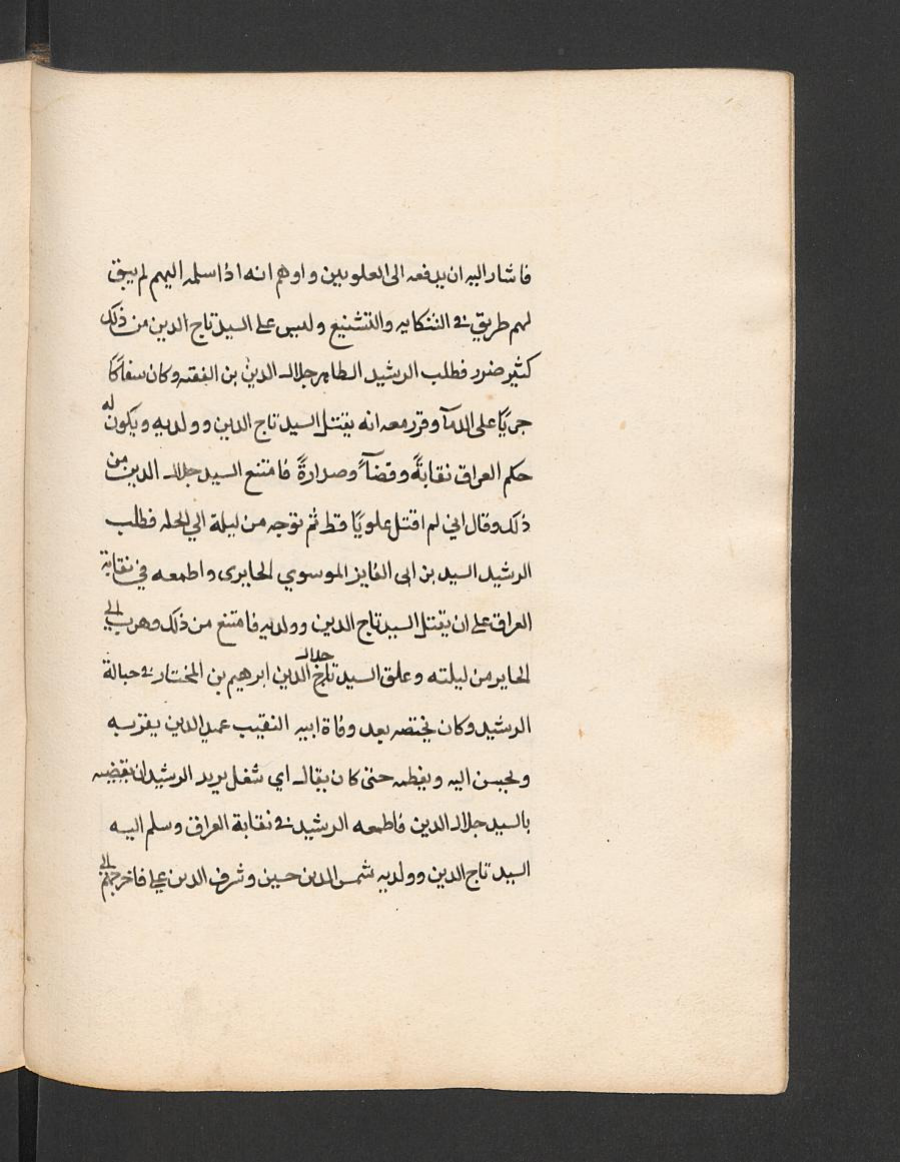 فاشار اليه ان يدفعه الى العلويين واوهم انه اذا سلمه اليهم لم يبق
لهم طريق في الشكايه والتشنيع وليس على السيد تاج الدين من ذلك
كثير ضرر فطلب الرشيد الطاهر جلال الدين بن الفقيه وكان سفاكًا
جريًا على الدمآ وقرر معه انه يقتل السيد تاج الدين وولديه ويكون له
حكم العراق نقابةً وقضآءً وصدارةً فامتنع السيد جلال الدين من
ذلك وقال اني لم اقتل علويًا قط ثم توجه من ليلة الي الحله فطلب
الرشيد السيد بن ابى الفايز الموسوي الحايرى واطمعه في نقابة
العراق على ان يقتل السيد تاج الدين وولديه فامتنع من ذلك وهرب الى
الحاير من ليلته وعلق السيد تاج جلال الدين ابرهيم بن المختار في حبالة
الرشيد وكان يختصه بعد وفاة ابيه النقيب عميد الدين يقربه
ويحسن اليه ويعظمه حتى كان يقال اي شغل يريد الرشيد ان يقضيه
بالسيد جلال الدين فاطمعه الرشيد في نقابة العراق وسلم اليه
السيد تاج الدين وولديه شمس الدين حسين وشرف الدين علي فاخرجهم الى